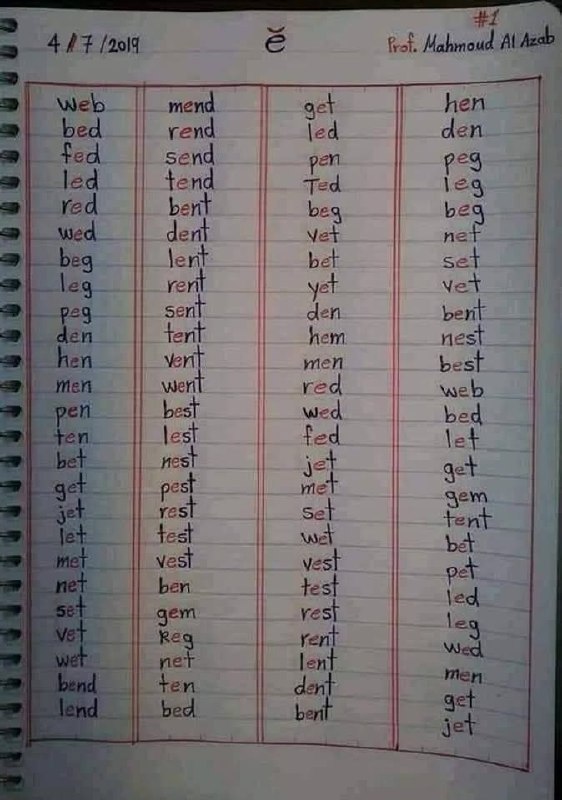 #1
4/7/2019 ĕ Prof. Mahmoud Al Azab
web mend get hen
bed rend led den
fed send pen peg
led tend Ted leg
red bent beg beg
wed dent vet net
beg lent bet set
leg rent yet vet
peg sent den bent
den tent hem nest
hen vent men best
men went red web
pen best wed bed
ten lest fed let
bet nest jet get
get pest met gem
jet rest set tent
let test wet bet
met vest vest pet
net ben test led
set gem rest leg
vet keg rent wed
wet net lent men
bend ten dent get
lend bed bent jet